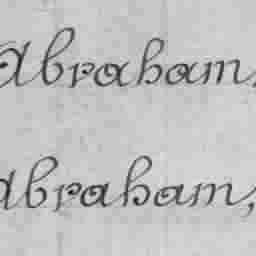 Abraham,
Abraham,